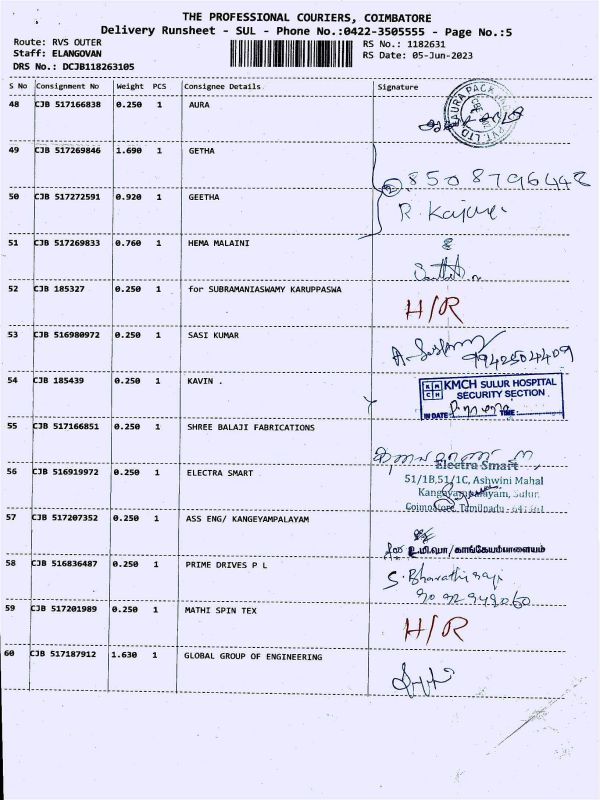 THE PROFESSIONAL COURIERS, COIMBATORE
Delivery Runsheet - SUL - Phone No.:0422-3505555 - Page No.:5
Route: RVS OUTER
Staff: ELANGOVAN
DRS No.: DCJB118263105
RS No.: 1182631
RS Date: 05-Jun-2023
S No Consignment No Weight PCS Consignee Details Signature
48 CJB 517166838 0.250 1 AURA
AURA PACK PVT LTD
49 CJB 517269846 1.690 1 GETHA
② 8508796448
50 CJB 517272591 0.920 1 GEETHA
R. 
51 CJB 517269833 0.760 1 HEMA MALAINI
52 CJB 185327 0.250 1 for SUBRAMANIASWAMY KARUPPASWA
H/R
53 CJB 516980972 0.250 1 SASI KUMAR
9942504409
54 CJB 185439 0.250 1 KAVIN .
KMCH SULUR HOSPITAL
SECURITY SECTION
IN DATE TIME
55 CJB 517166851 0.250 1 SHREE BALAJI FABRICATIONS
56 CJB 516919972 0.250 1 ELECTRA SMART
Electra Smart
51/1B,51/1C, Ashwini Mahal
Kangayampalayam, Sulur
Coimbatore, Tamilnadu
57 CJB 517207352 0.250 1 ASS ENG/ KANGEYAMPALAYAM
உ.மி.பொ/காங்கேயம்பாளையம்
58 CJB 516836487 0.250 1 PRIME DRIVES P L
S. Bharathi raji
59 CJB 517201989 0.250 1 MATHI SPIN TEX
H/R
60 CJB 517187912 1.630 1 GLOBAL GROUP OF ENGINEERING